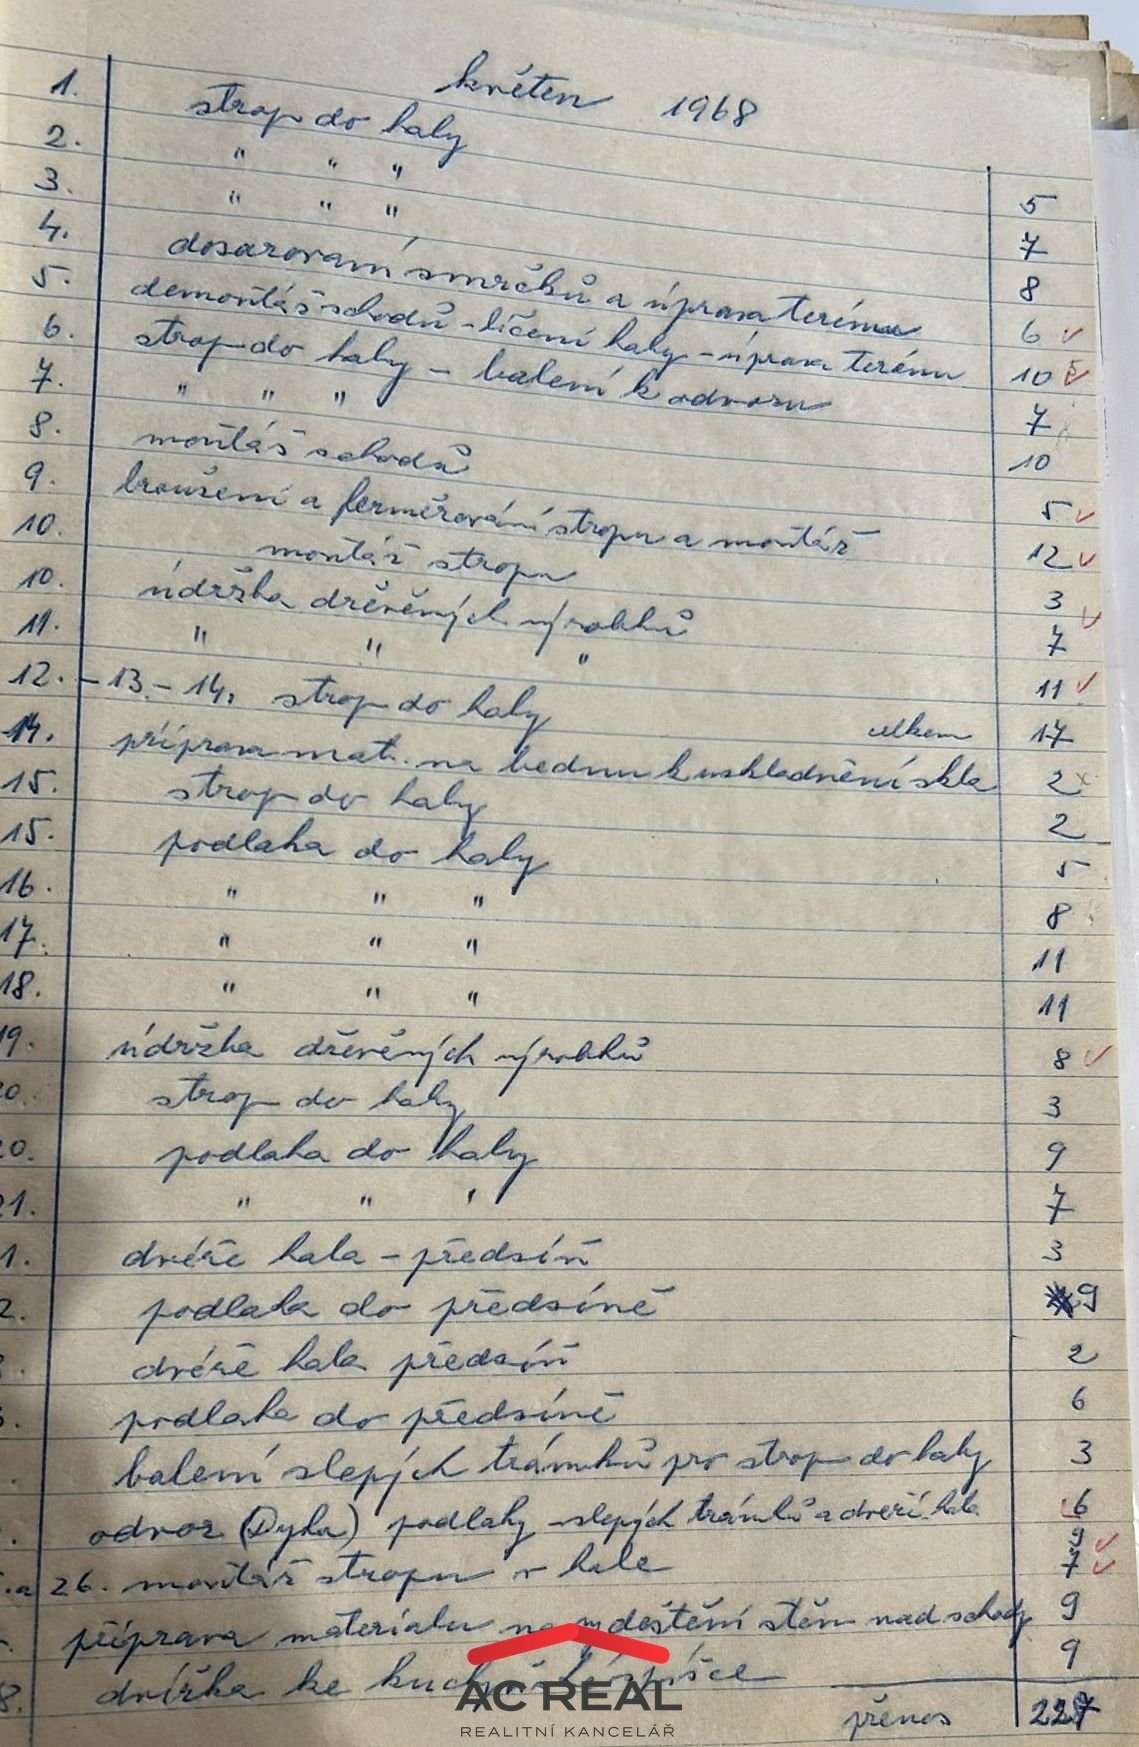 květen 1968
1. strop do haly
2. " " " 5
3. " " " 7
4. dosazovaní smrčků a úprava terénu 8
5. demontáš schodů - líčení haly - úprava terénu 6
6. strop do haly - balení k odvozu 10
7. " " " 7
8. montáš schodů 10
9. broušení a ferměrování stropu a montáž 5
10. montáž stropu 12
10. údržba dřěvěných výrobků 3
11. " " " 7
12. - 13. - 14. strop do haly 11
celkem 17
14. příprava mat. na bednu k uskladnění skla 2
15. strop do haly 2
15. podlaha do haly 5
16. " " " 8
17. " " " 11
18. " " " 11
19. údržba dřěvěných výrobků 8
20. strop do haly 3
20. podlaha do haly 9
21. " " " 7
1. dvéře hala - předsíň 3
2. podlaha do předsíně 9
dvéře hala předsíň 2
podlaha do předsíně 6
balení slepých trámků pro strop do haly 3
odvoz (Dyha) podlahy - slepých trámků a dveří hala 6
9
a 26. montáž stropu v hale 7
příprava materialu na deštění stěn nad schody 9
8. dvířka ke 9
přenos 227
AC REAL
REALITNÍ KANCELÁŘ